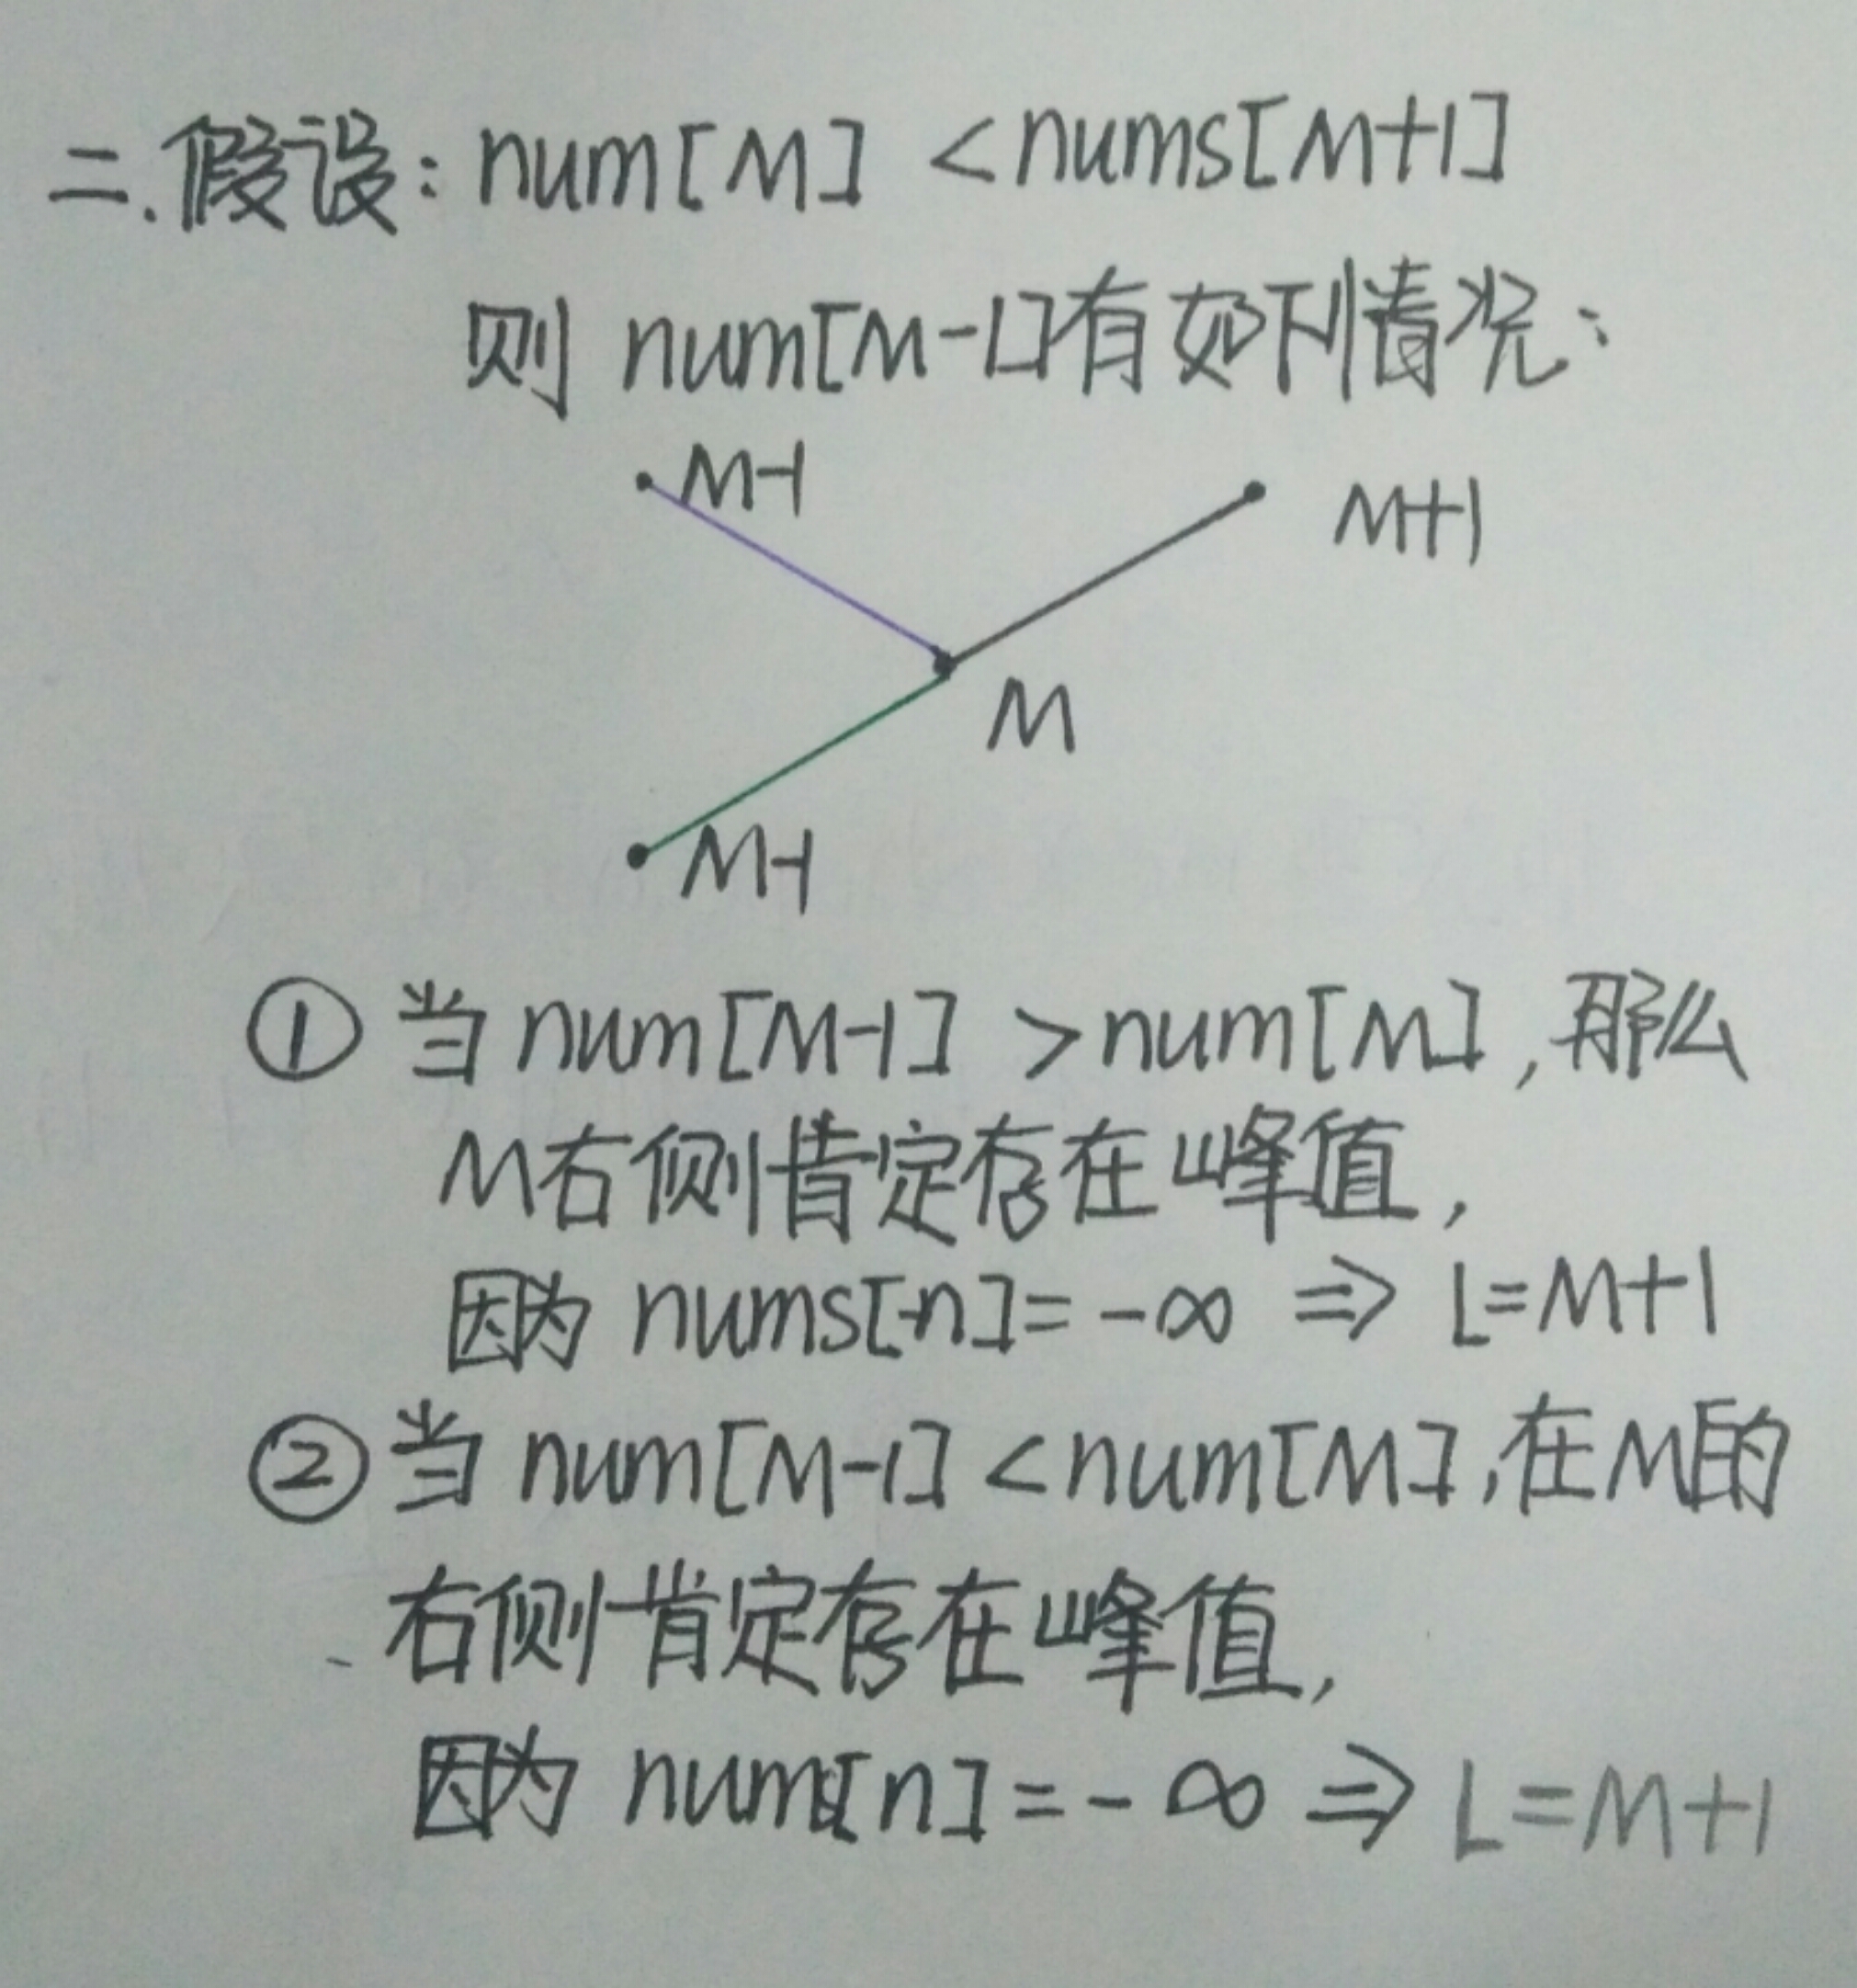 二.假设: num[M] <nums[M+1]
则 num[M-1]有如下情况:
M-1
M+1
M
M-1
① 当 num[M-1] >num[M],那么
M右侧肯定存在峰值,
因为 nums[n]=-∞ ⇒ L=M+1
② 当 num[M-1] <num[M],在M的
右侧肯定存在峰值,
因为 nums[n]=-∞ ⇒ L=M+1